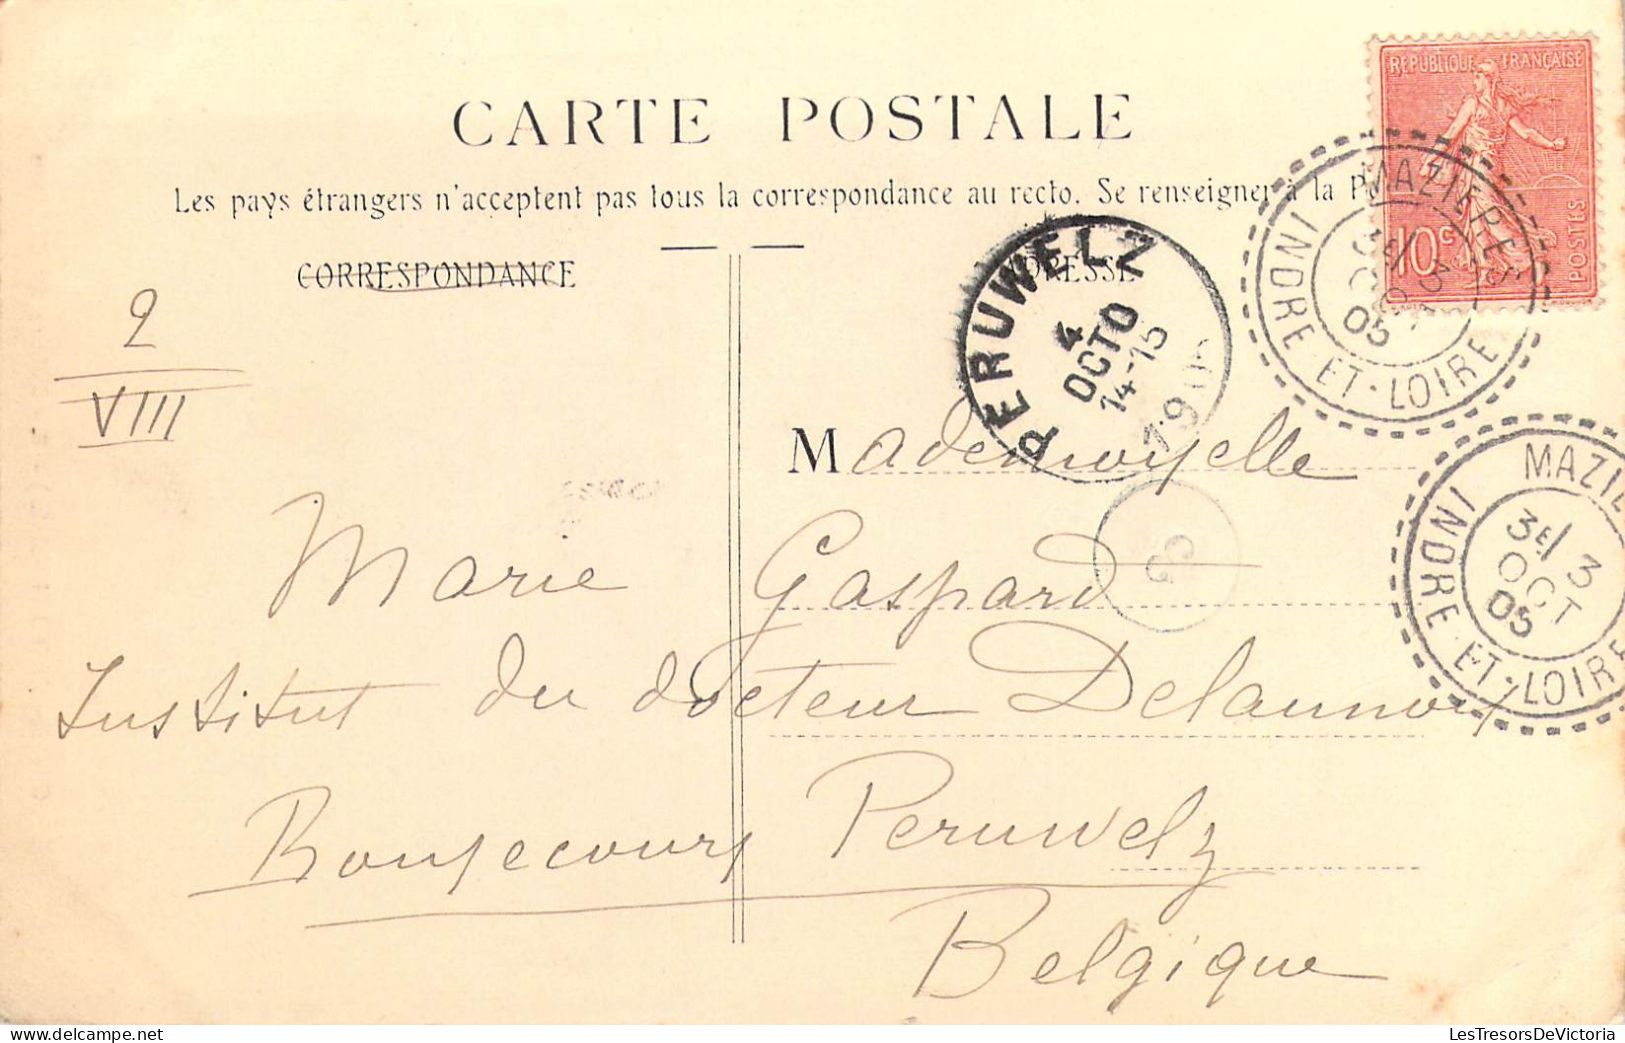 CARTE POSTALE
Les pays étrangers n'acceptent pas tous la correspondance au recto. Se renseigner à la
CORRESPONDANCE
REPUBLIQUE FRANÇAISE
10c
POSTES
MAZIERES
3E/ 3
OCT
05
INDRE ET-LOIRE
PERUWELZ
4
OCTO
14-15
1905
2
VIII
Mademoyselle
MAZIE
3E/ 3
OCT
05
INDRE ET-LOIRE
Marie Gaspard
Institut du docteur Delaunnoy
Bonsecours Peruwelz
Belgique
delcampe.net
LesTresorsDeVictoria